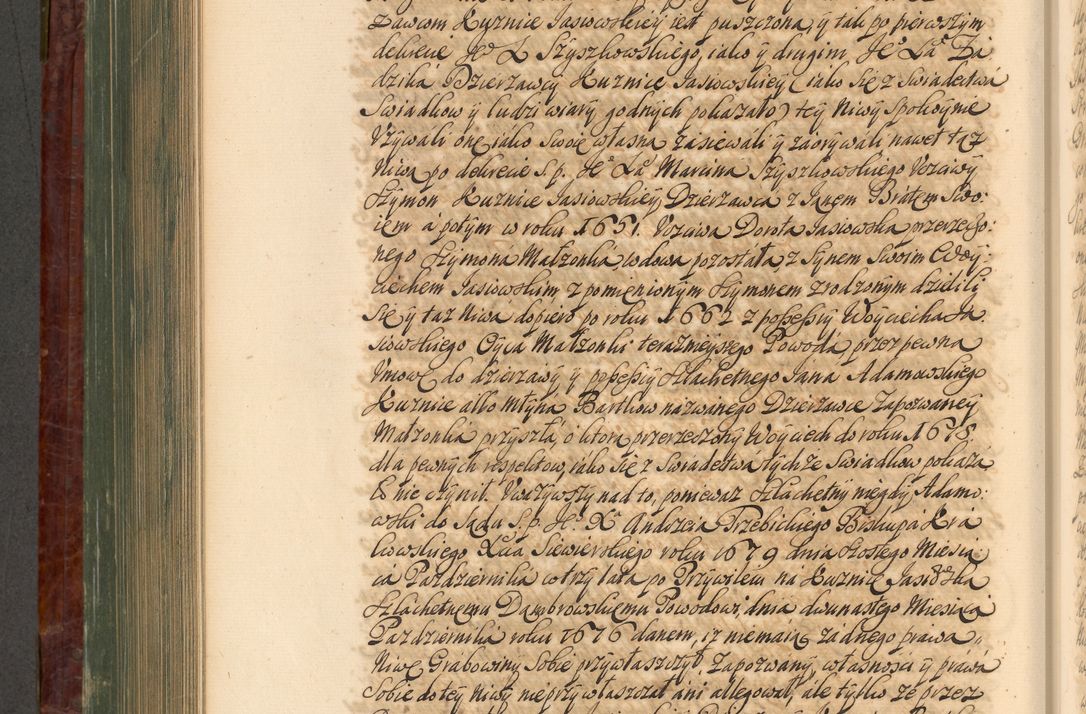 Dawcom Kuznice Jasiowskiey iest puszczona, y tak po pierwszym
dekrecie Jº X Szyszkowskiego, iako y drugim Jº Xa Za
dzika Dzierzawcy Kuznice Jasiowskiey (iako się z Swiadectwá
Swiadkow y ludzi wiary godnych pokazało) tey Niwy Spokoynie
Vzywali onę iako Swoię własną zasiewali y zaorywali nawet tęż
Niwę po dekrecie S. p. Jº Xa Marcina Szyszkowskiego Vczciwy
Szymon Kuznice Jasiowskiey Dzierzawca z Janem Bratem Swo:
iem á potym w roku 1651. Vczciwa Dorota Jasiowska przerzeczo:
nego Szymona Małzonka, wdowa pozostała, z Synem Swoim Woy:
ciechem Jasiowskim, z pomienionym Szymonem zrodzonym dzielili
Się, y taż Niwa dopiero po roku 1662 z possessiy Woyciecha Ja
siowskiego Oyca Małzonki teraznieyszego Powoda, przez pewną
Vmowę do dzierzawy y possessiy Szlachetnego Jana Adamowskiego
Kuznice albo Młyna Bartkow nazwanego Dzierzawce Zapozwaney
Małzonká przyszła, o ktorą przerzeczony Woyciech do roku 1678
dla pewnych respektow, iako się z Swiadectwá tychże Swiadkow pokaza
ło nie czynił. Vważywszy nad to, poniewaz Szlachetny niegdy Adamo:
wski do Sądu S. p. Jº Xa Andrzeia Trzebickiego Biskupa Kra
kowskiego Xcia Siewierskiego roku 1679 dnia Szostego Miesią
ca Pazdziernika w trzy lata po Przywileiu na Kuznicę Jasioska
Szlachetnemu Dąmbrowskiemu Powodowi, dnia dwunastego Miesiąca
Pazdziernika roku 1676 danem, iz niemaiąc zadnego prawa
Niwę Grabowiny Sobie przywłaszczył Zapozwany, własnosci y prawa
Sobie do tey Niwy nieprzywłaszczał ani allegował, ale tylko ze przez